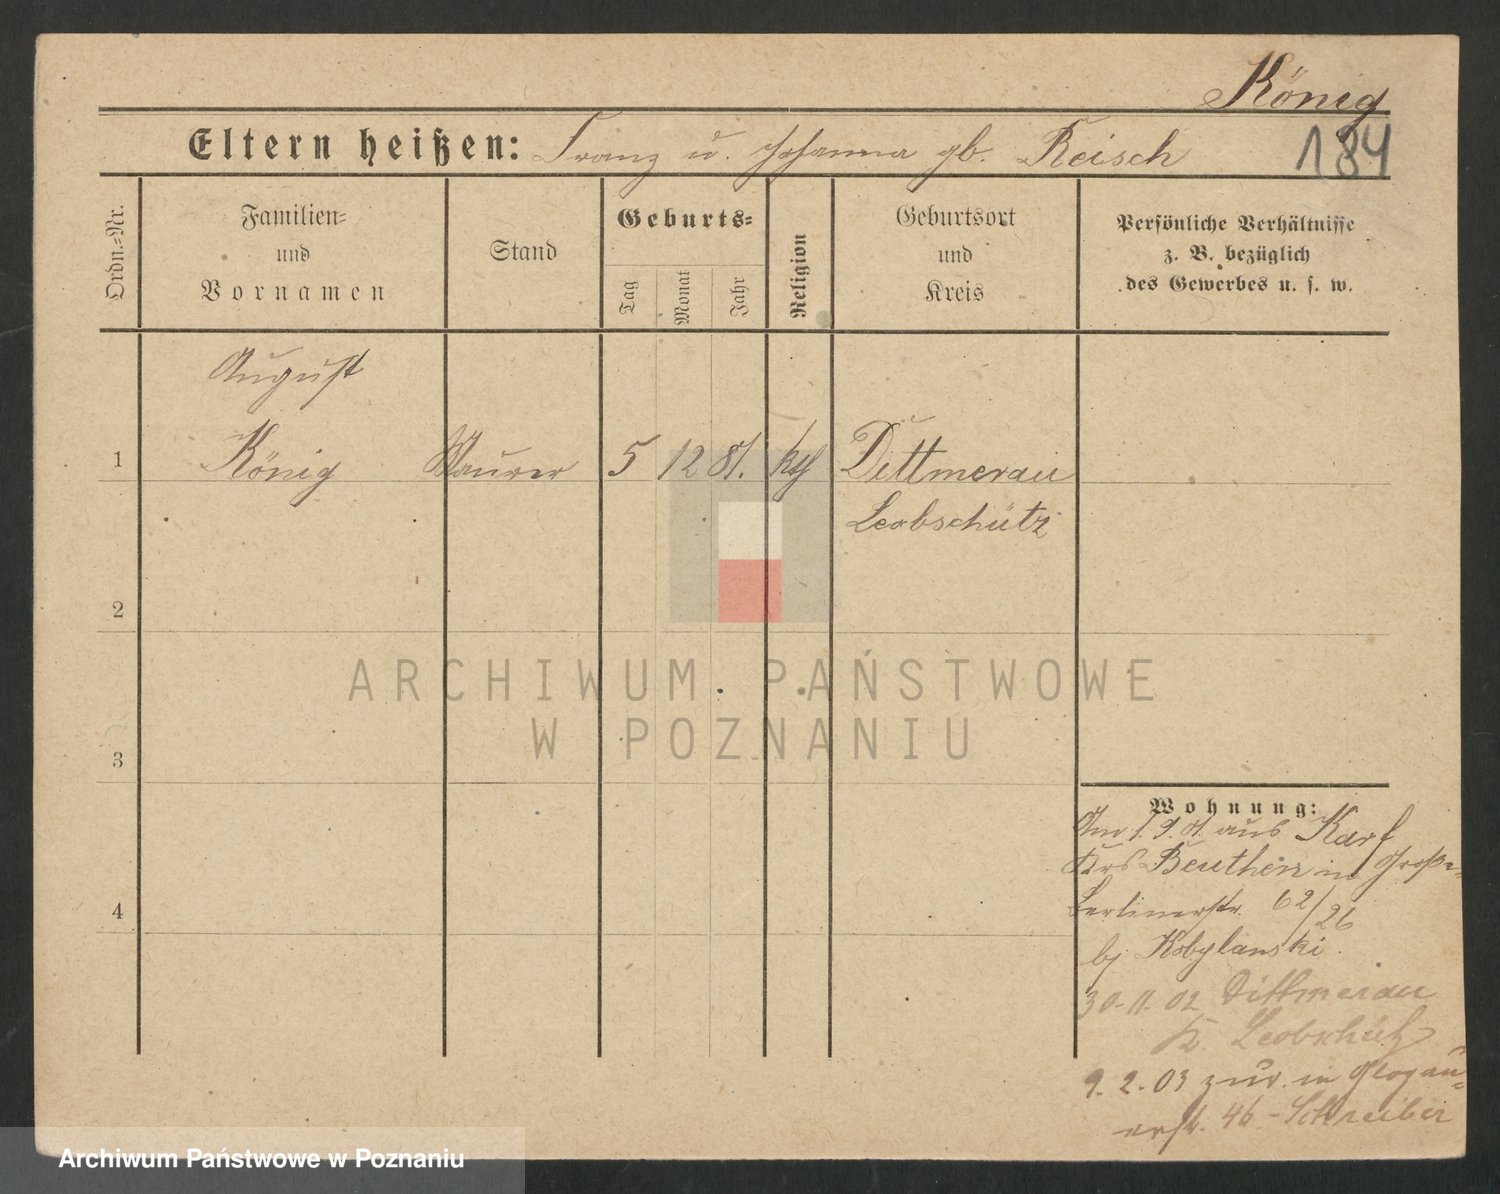 König
Eltern heißen: Franz u. Johanna gb. Reisch
184
Ordn.=Nr.
Familien=
und
Vornamen
Stand
Geburts=
Tag
Monat
Jahr
Religion
Geburtsort
und
Kreis
Persönliche Verhältnisse
z. B. bezüglich
des Gewerbes u. s. w.
August
1 König Maurer 5 12 81. kth Dittmerau
Leobschütz
2
ARCHIWUM PAŃSTWOWE
W POZNANIU
3
4
Wohnung:
Am 1.9. aus Karf
Krs Beuthen in Große
Berlinerstr. 62/26
bj Kobylanski.
30-11.02 Dittmerau
Kr. Leobschütz
9.2.03 zur. in Glogau=
erstr. 46 - Schreiber
Archiwum Państwowe w Poznaniu